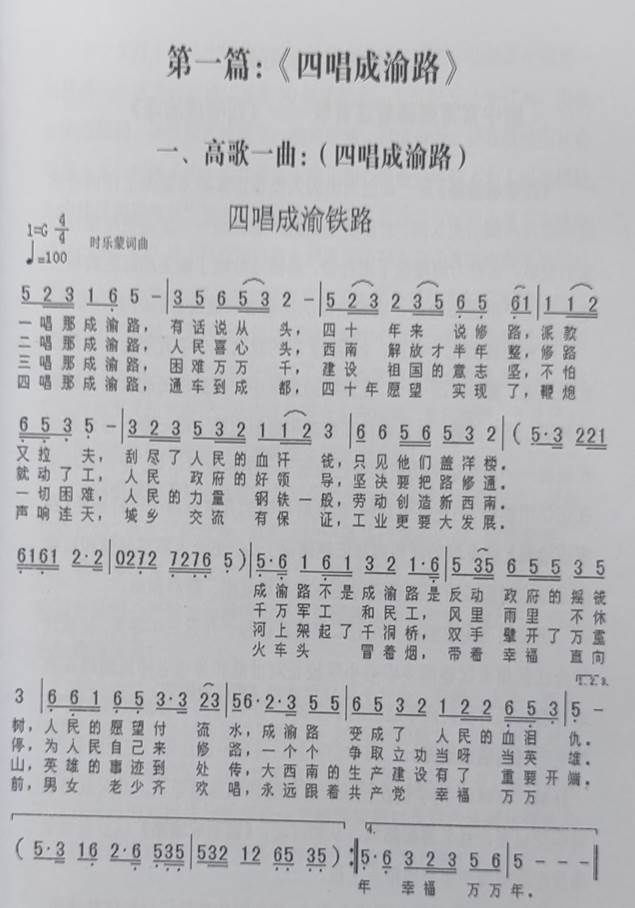 第一篇：《四唱成渝路》
一、高歌一曲：（四唱成渝路）
四唱成渝铁路
1=G 4/4
♩=100
时乐蒙词曲
5 2 3 1 6 5 - | 3 5 6 5 3 2 - | 5 2 3 2 3 5 6 5 61 | 1 1 2
一唱那成渝路，有话说从头，四十年来说修路，派款
二唱那成渝路，人民喜心头，西南解放才半年整，修路
三唱那成渝路，困难万万千，建设祖国的意志坚，不怕
四唱那成渝路，通车到成都，四十年愿望实现了，鞭炮
6 5 3 5 - | 3 2 3 5 3 2 1 1 2 3 | 6 6 5 6 5 3 2 | ( 5·3 221
又拉夫，刮尽了人民的血汗钱，只见他们盖洋楼。
就动了工，人民政府的好领导，坚决要把路修通。
一切困难，人民的力量钢铁一般，劳动创造新西南。
声响连天，城乡交流有保证，工业更要大发展。
6161 2·2 | 0272 7276 5 ) | 5·6 1 6 1 3 2 1·6 | 5 35 6 5 5 3 5
成渝路不是成渝路是反动政府的摇钱
千万军工和民工，风里雨里不休
河上架起了千洞桥，双手劈开了万重
火车头冒着烟，带着幸福直向
1.2.3.
3 | 6 6 1 6 5 3·3 23 | 56·2·3 5 5 | 6 5 3 2 1 2 2 6 5 3 | 5 -
树，人民的愿望付流水，成渝路变成了人民的血泪仇。
停，为人民自己来修路，一个个争取立功当呀当英雄。
山，英雄的事迹到处传，大西南的生产建设有了重要开端。
前，男女老少齐欢唱，永远跟着共产党幸福万万
4.
( 5·3 16 2·6 535 | 532 12 65 35 ) :‖ 5·6 3 2 3 5 6 | 5 - - - ‖
年幸福万万年。